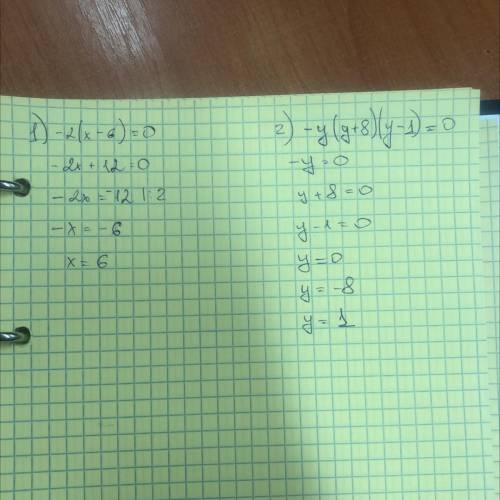 1) -2(x-6)=0
-2x+12=0
-2x=-12 |:2
-x=-6
x=6
2) -y(y+8)(y-1)=0
-y=0
y+8=0
y-1=0
y=0
y=-8
y=1